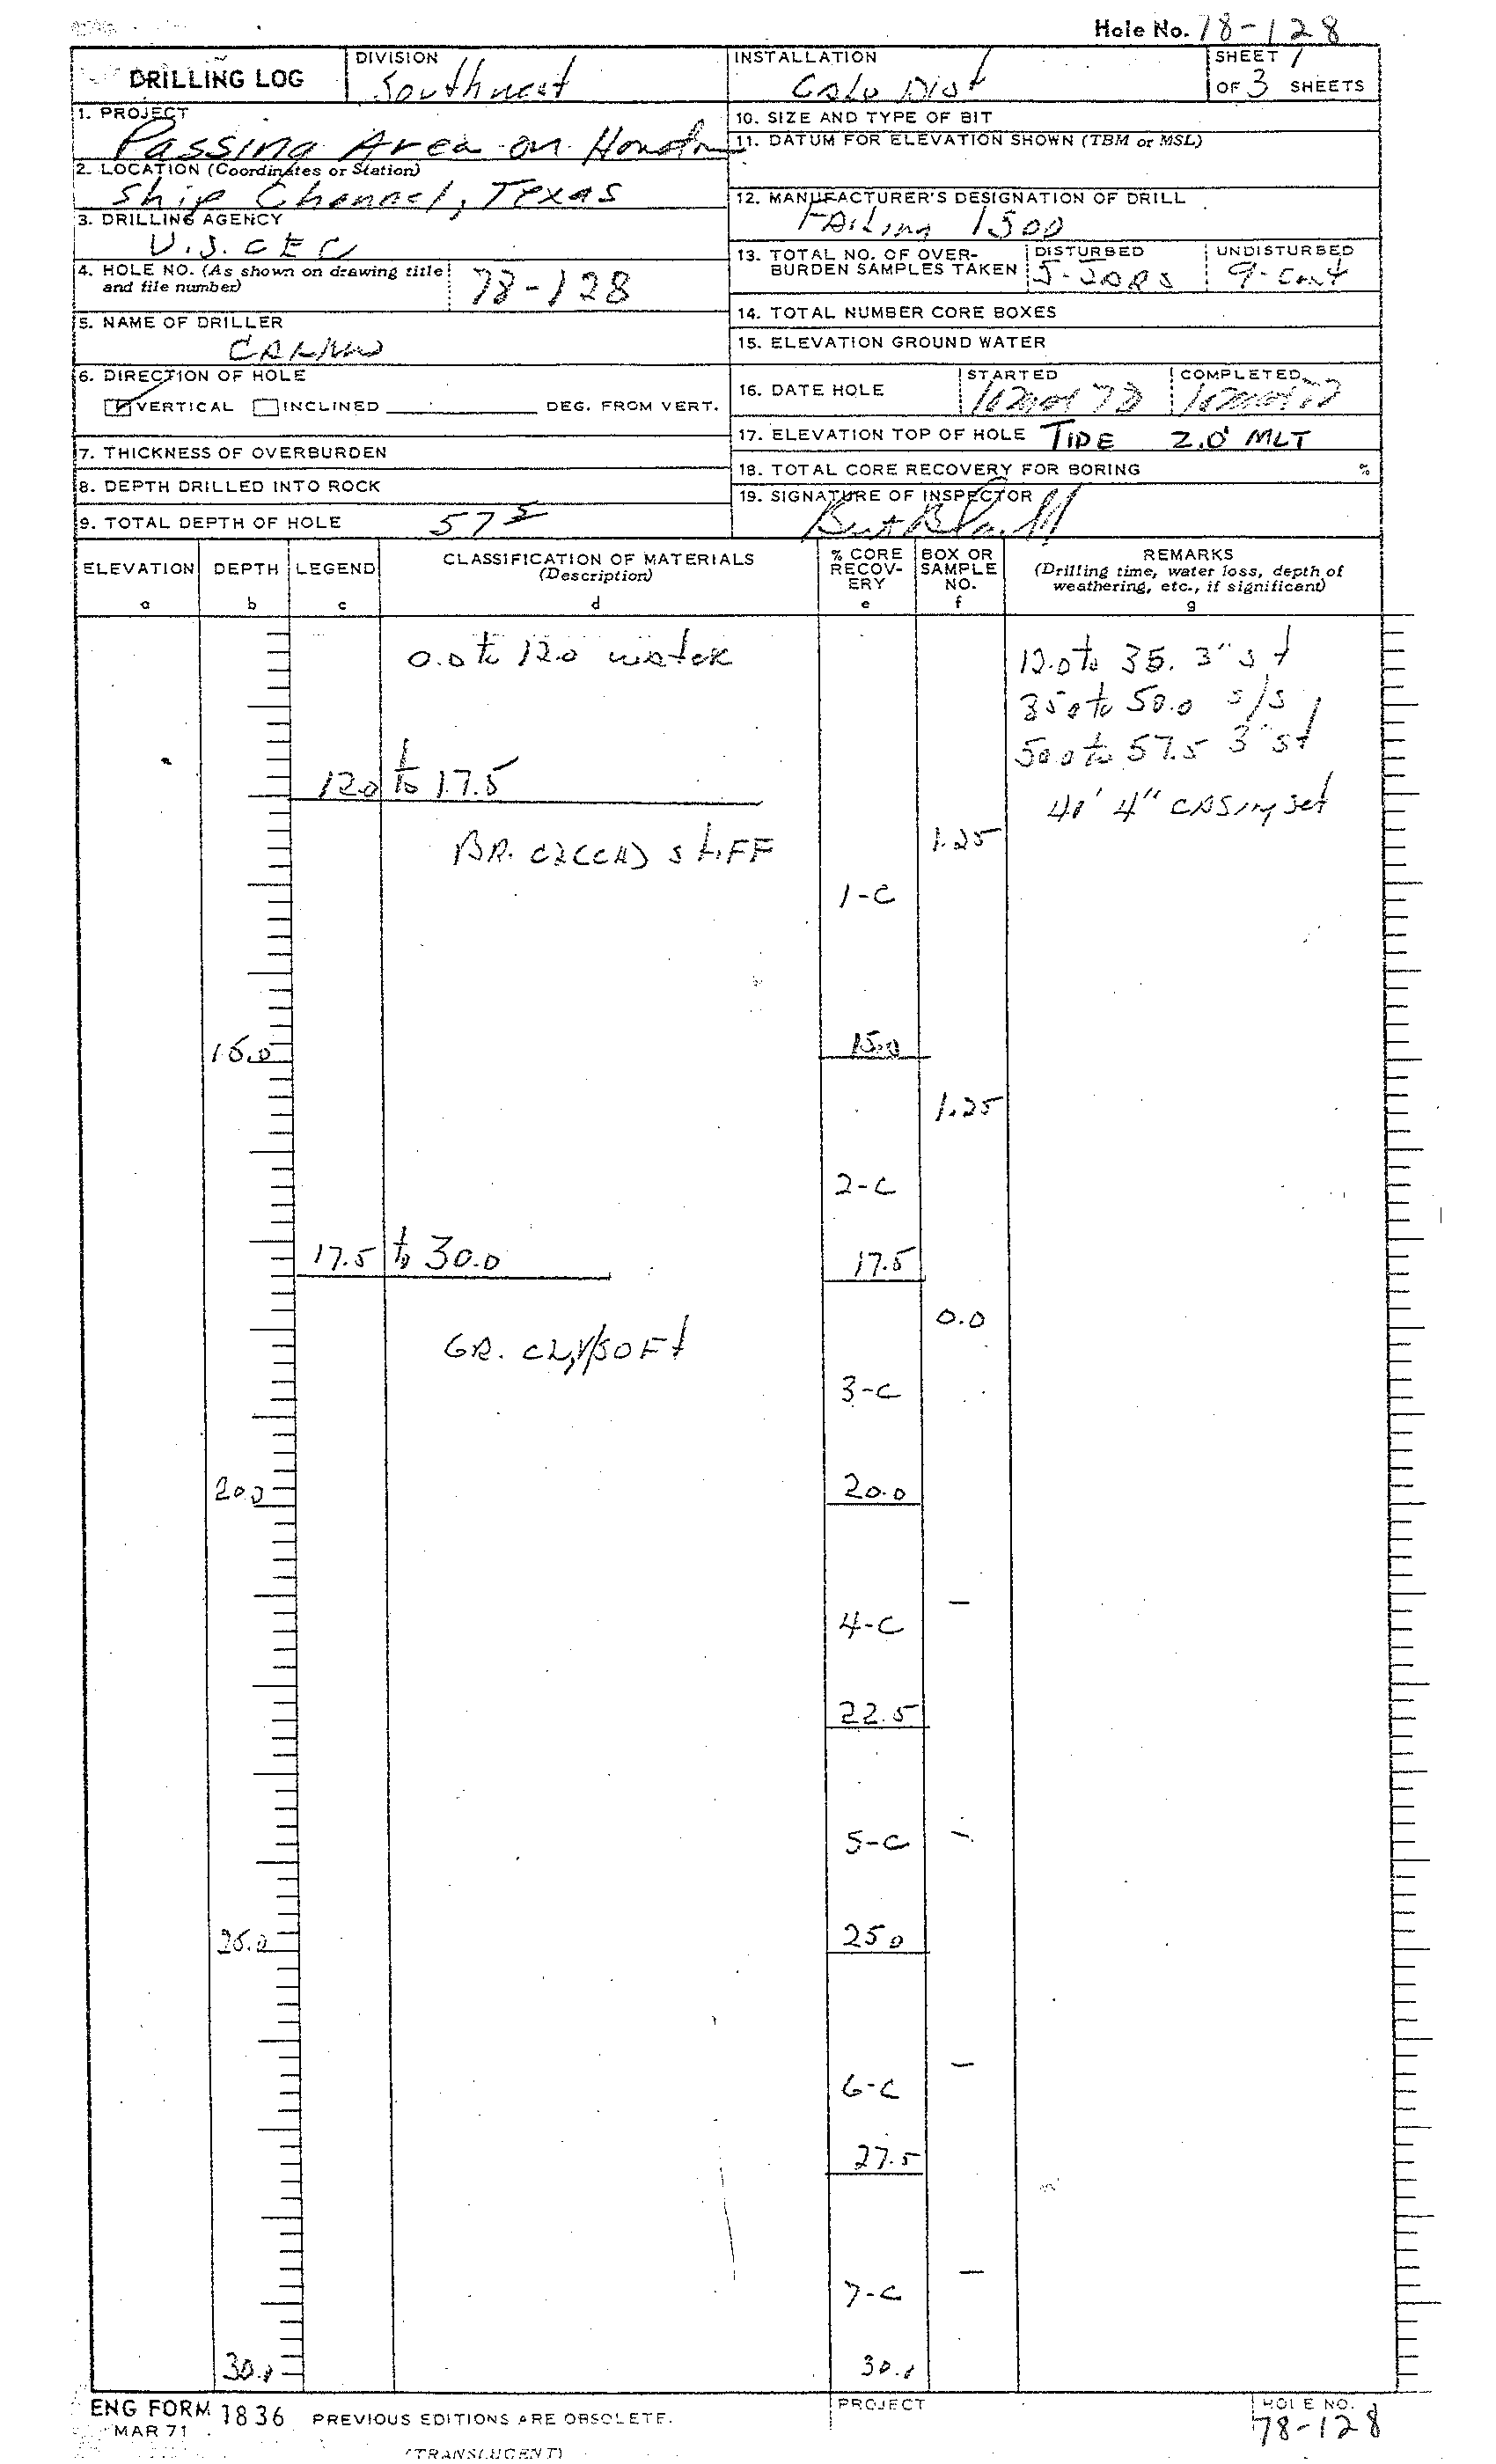 Hole No. 78-128
DRILLING LOG
DIVISION
Southwest
INSTALLATION
Galv Dist
SHEET 1
OF 3 SHEETS
1. PROJECT
Passing Area on Houston
2. LOCATION (Coordinates or Station)
Ship Channel, Texas
3. DRILLING AGENCY
U.S. CEC
4. HOLE NO. (As shown on drawing title and file number)
78-128
5. NAME OF DRILLER
6. DIRECTION OF HOLE
VERTICAL INCLINED DEG. FROM VERT.
7. THICKNESS OF OVERBURDEN
8. DEPTH DRILLED INTO ROCK
9. TOTAL DEPTH OF HOLE 57 5
10. SIZE AND TYPE OF BIT
11. DATUM FOR ELEVATION SHOWN (TBM or MSL)
12. MANUFACTURER'S DESIGNATION OF DRILL
Failing 1500
13. TOTAL NO. OF OVER-
BURDEN SAMPLES TAKEN
DISTURBED
5-JARS
UNDISTURBED
9-Cont
14. TOTAL NUMBER CORE BOXES
15. ELEVATION GROUND WATER
16. DATE HOLE
STARTED
COMPLETED
17. ELEVATION TOP OF HOLE TIDE 2.0' MLT
18. TOTAL CORE RECOVERY FOR BORING %
19. SIGNATURE OF INSPECTOR
ELEVATION
a
DEPTH
b
LEGEND
c
CLASSIFICATION OF MATERIALS
(Description)
d
% CORE
RECOV-
ERY
e
BOX OR
SAMPLE
NO.
f
REMARKS
(Drilling time, water loss, depth of
weathering, etc., if significant)
g
0.0 to 12.0 water
12.0 to 35. 3" st
35.0 to 50.0 s/s
50.0 to 57.5 3" st
40' 4" CASing set
12.0 to 17.5
BR. CL(CH) stiFF
1.25
1-C
15.0
15.0
1.25
2-C
17.5 to 30.0
17.5
0.0
GR. CL, V/SOFt
3-C
20.0
20.0
4-C
-
22.5
5-C
-
25.0
25.0
6-C
-
27.5
7-C
-
30.0
30.0
ENG FORM 1836
MAR 71
PREVIOUS EDITIONS ARE OBSOLETE.
PROJECT
HOLE NO.
78-128
(TRANSLUCENT)